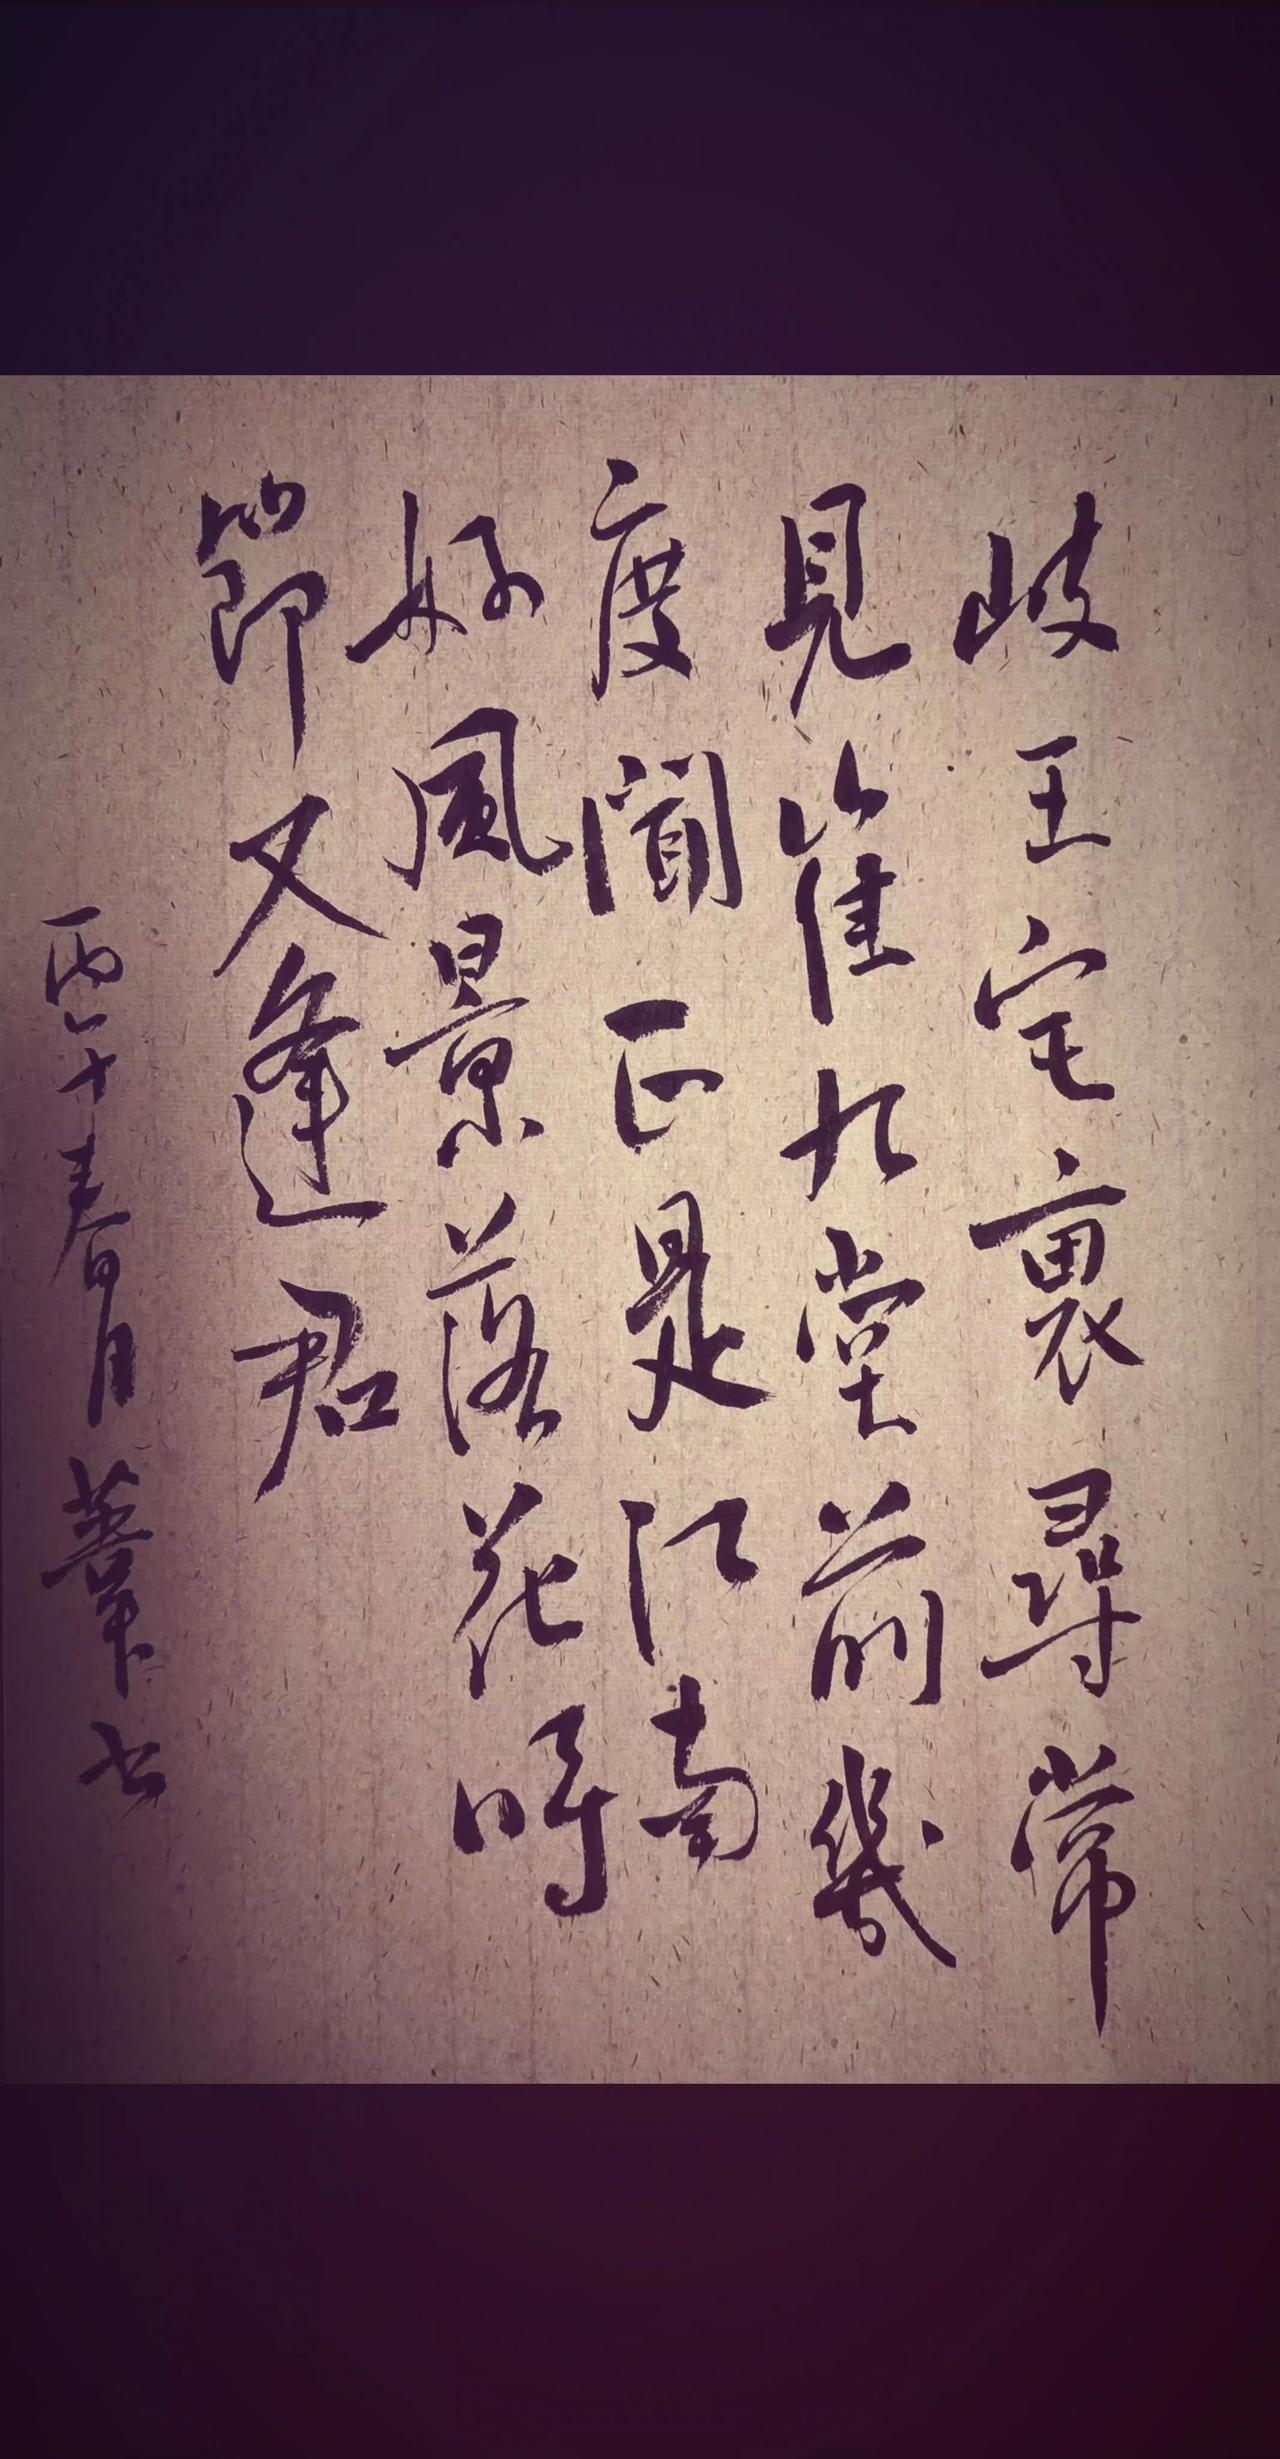 岐王宅裏尋常
見崔九堂前幾
度聞正是江南
好風景落花時
節又逢君
丙午春月 書